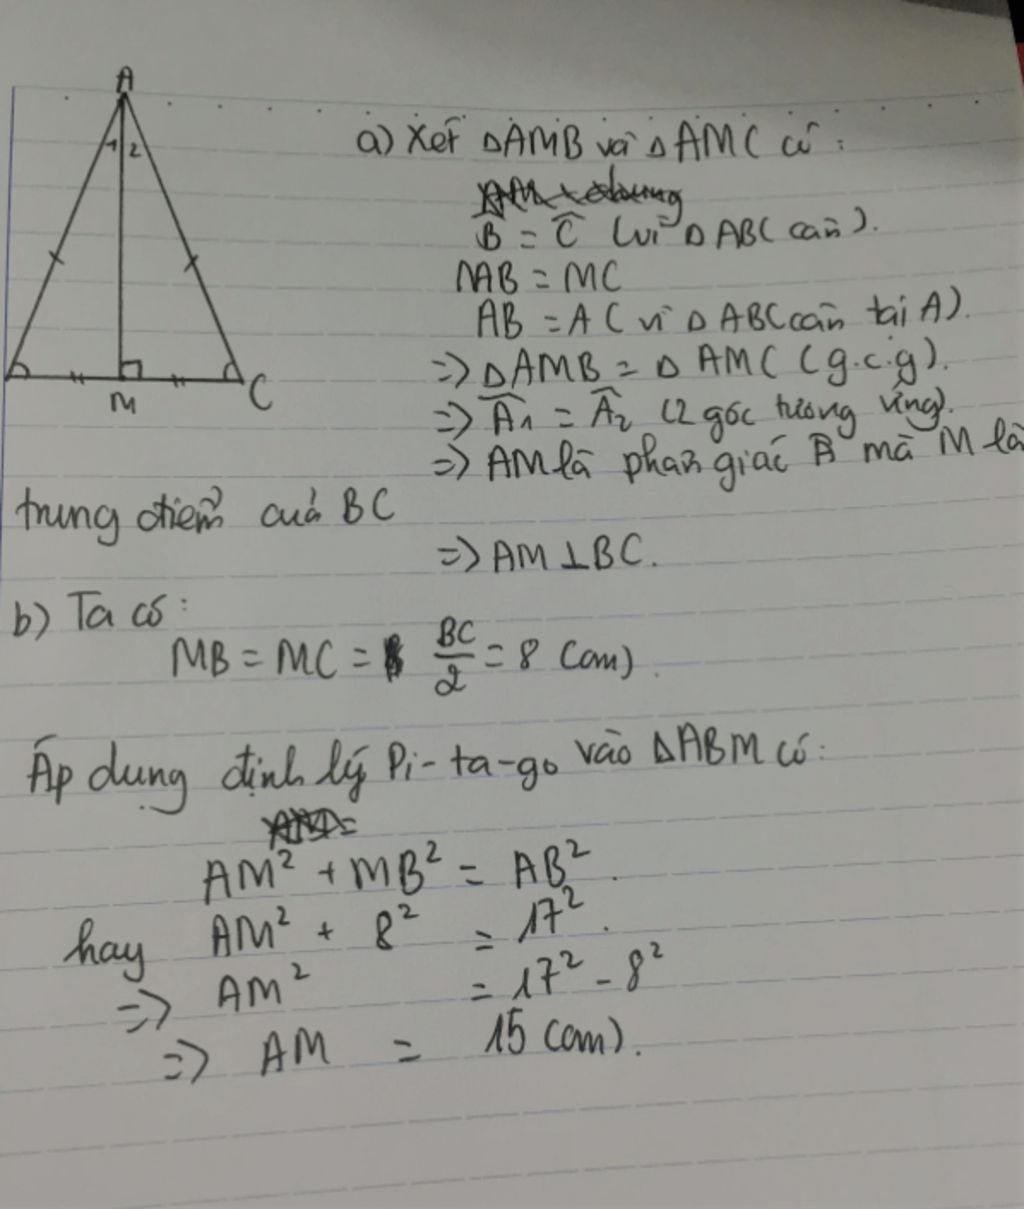 A
1 2
M
C
a) Xét ΔAMB và ΔAMC có:
AM chung
B̂ = Ĉ (vì ΔABC cân).
MB = MC
AB = AC vì ΔABC cân tại A).
=> ΔAMB = ΔAMC (g.c.g).
=> Â1 = Â2 (2 góc tương ứng).
=> AM là phân giác mà M là
trung điểm của BC
=> AM ⊥ BC.
b) Ta có:
MB = MC = BC/2 = 8 (cm).
Áp dụng định lý Pi-ta-go vào ΔABM có:
AM² + MB² = AB².
hay AM² + 8² = 17².
=> AM² = 17² - 8²
=> AM = 15 (cm).